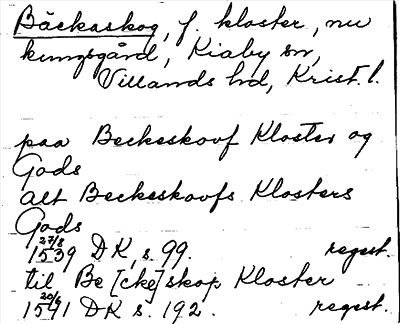 Bäckaskog, f. kloster, nu
kungsgård, Kiaby sn,
Villands hd, Krist. l.
paa Beckeskovf Kloster og
Gods
alt Beckeskovfs Klosters
Gods
27/8
1539 DK, s. 99. regest.
til Be[cke]skop Kloster
20/6
1541 DK s. 192. regest.